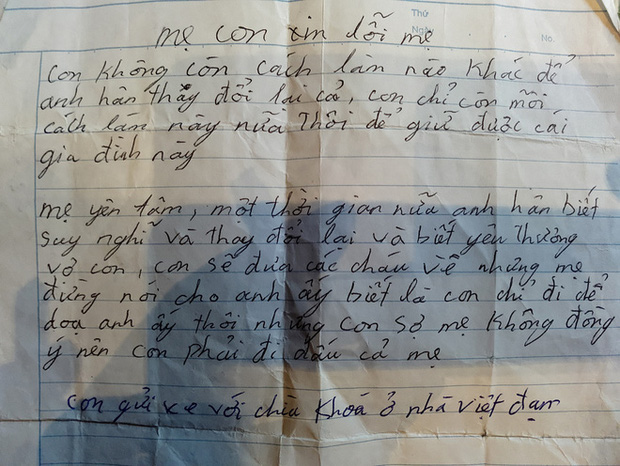 Thứ
Ngày
No.
mẹ con xin lỗi mẹ
con không còn cách làm nào khác để
anh hân thay đổi lại cả, con chỉ còn mỗi
cách làm này nữa thôi để giữ được cái
gia đình này
mẹ yên tâm, một thời gian nữa anh hân biết
suy nghĩ và thay đổi lại và biết yêu thương
vợ con, con sẽ đưa các cháu về nhưng mẹ
đừng nói cho anh ấy biết là con chỉ đi để
doạ anh ấy thôi nhưng con sợ mẹ không đồng
ý nên con phải đi dấu cả mẹ
con gửi xe với chìa khoá ở nhà việt đam